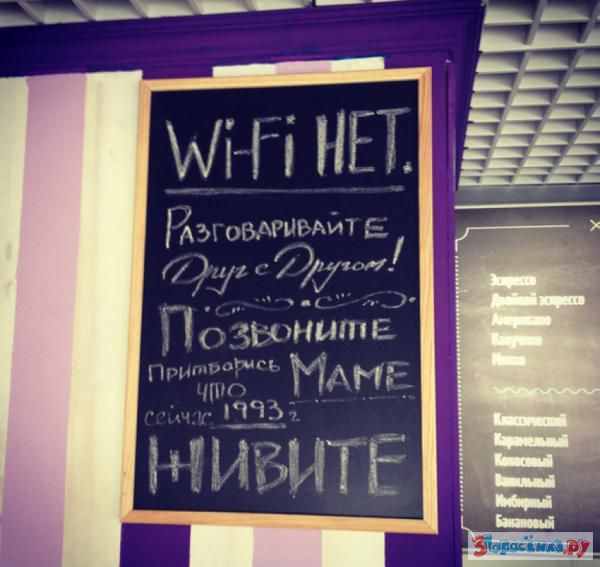 Wi-Fi НЕТ.
РАЗГОВАРИВАЙТЕ
Друг с Другом!
ПОЗВОНИТЕ
ПРИТВОРИСЬ МАМЕ
ЧТО
сейчас 1993 г
ЖИВИТЕ
Эспрессо
Двойной эспрессо
Американо
Капучино
Мокко
Классический
Карамельный
Кокосовый
Ванильный
Имбирный
Банановый
3Поросёнка.ру